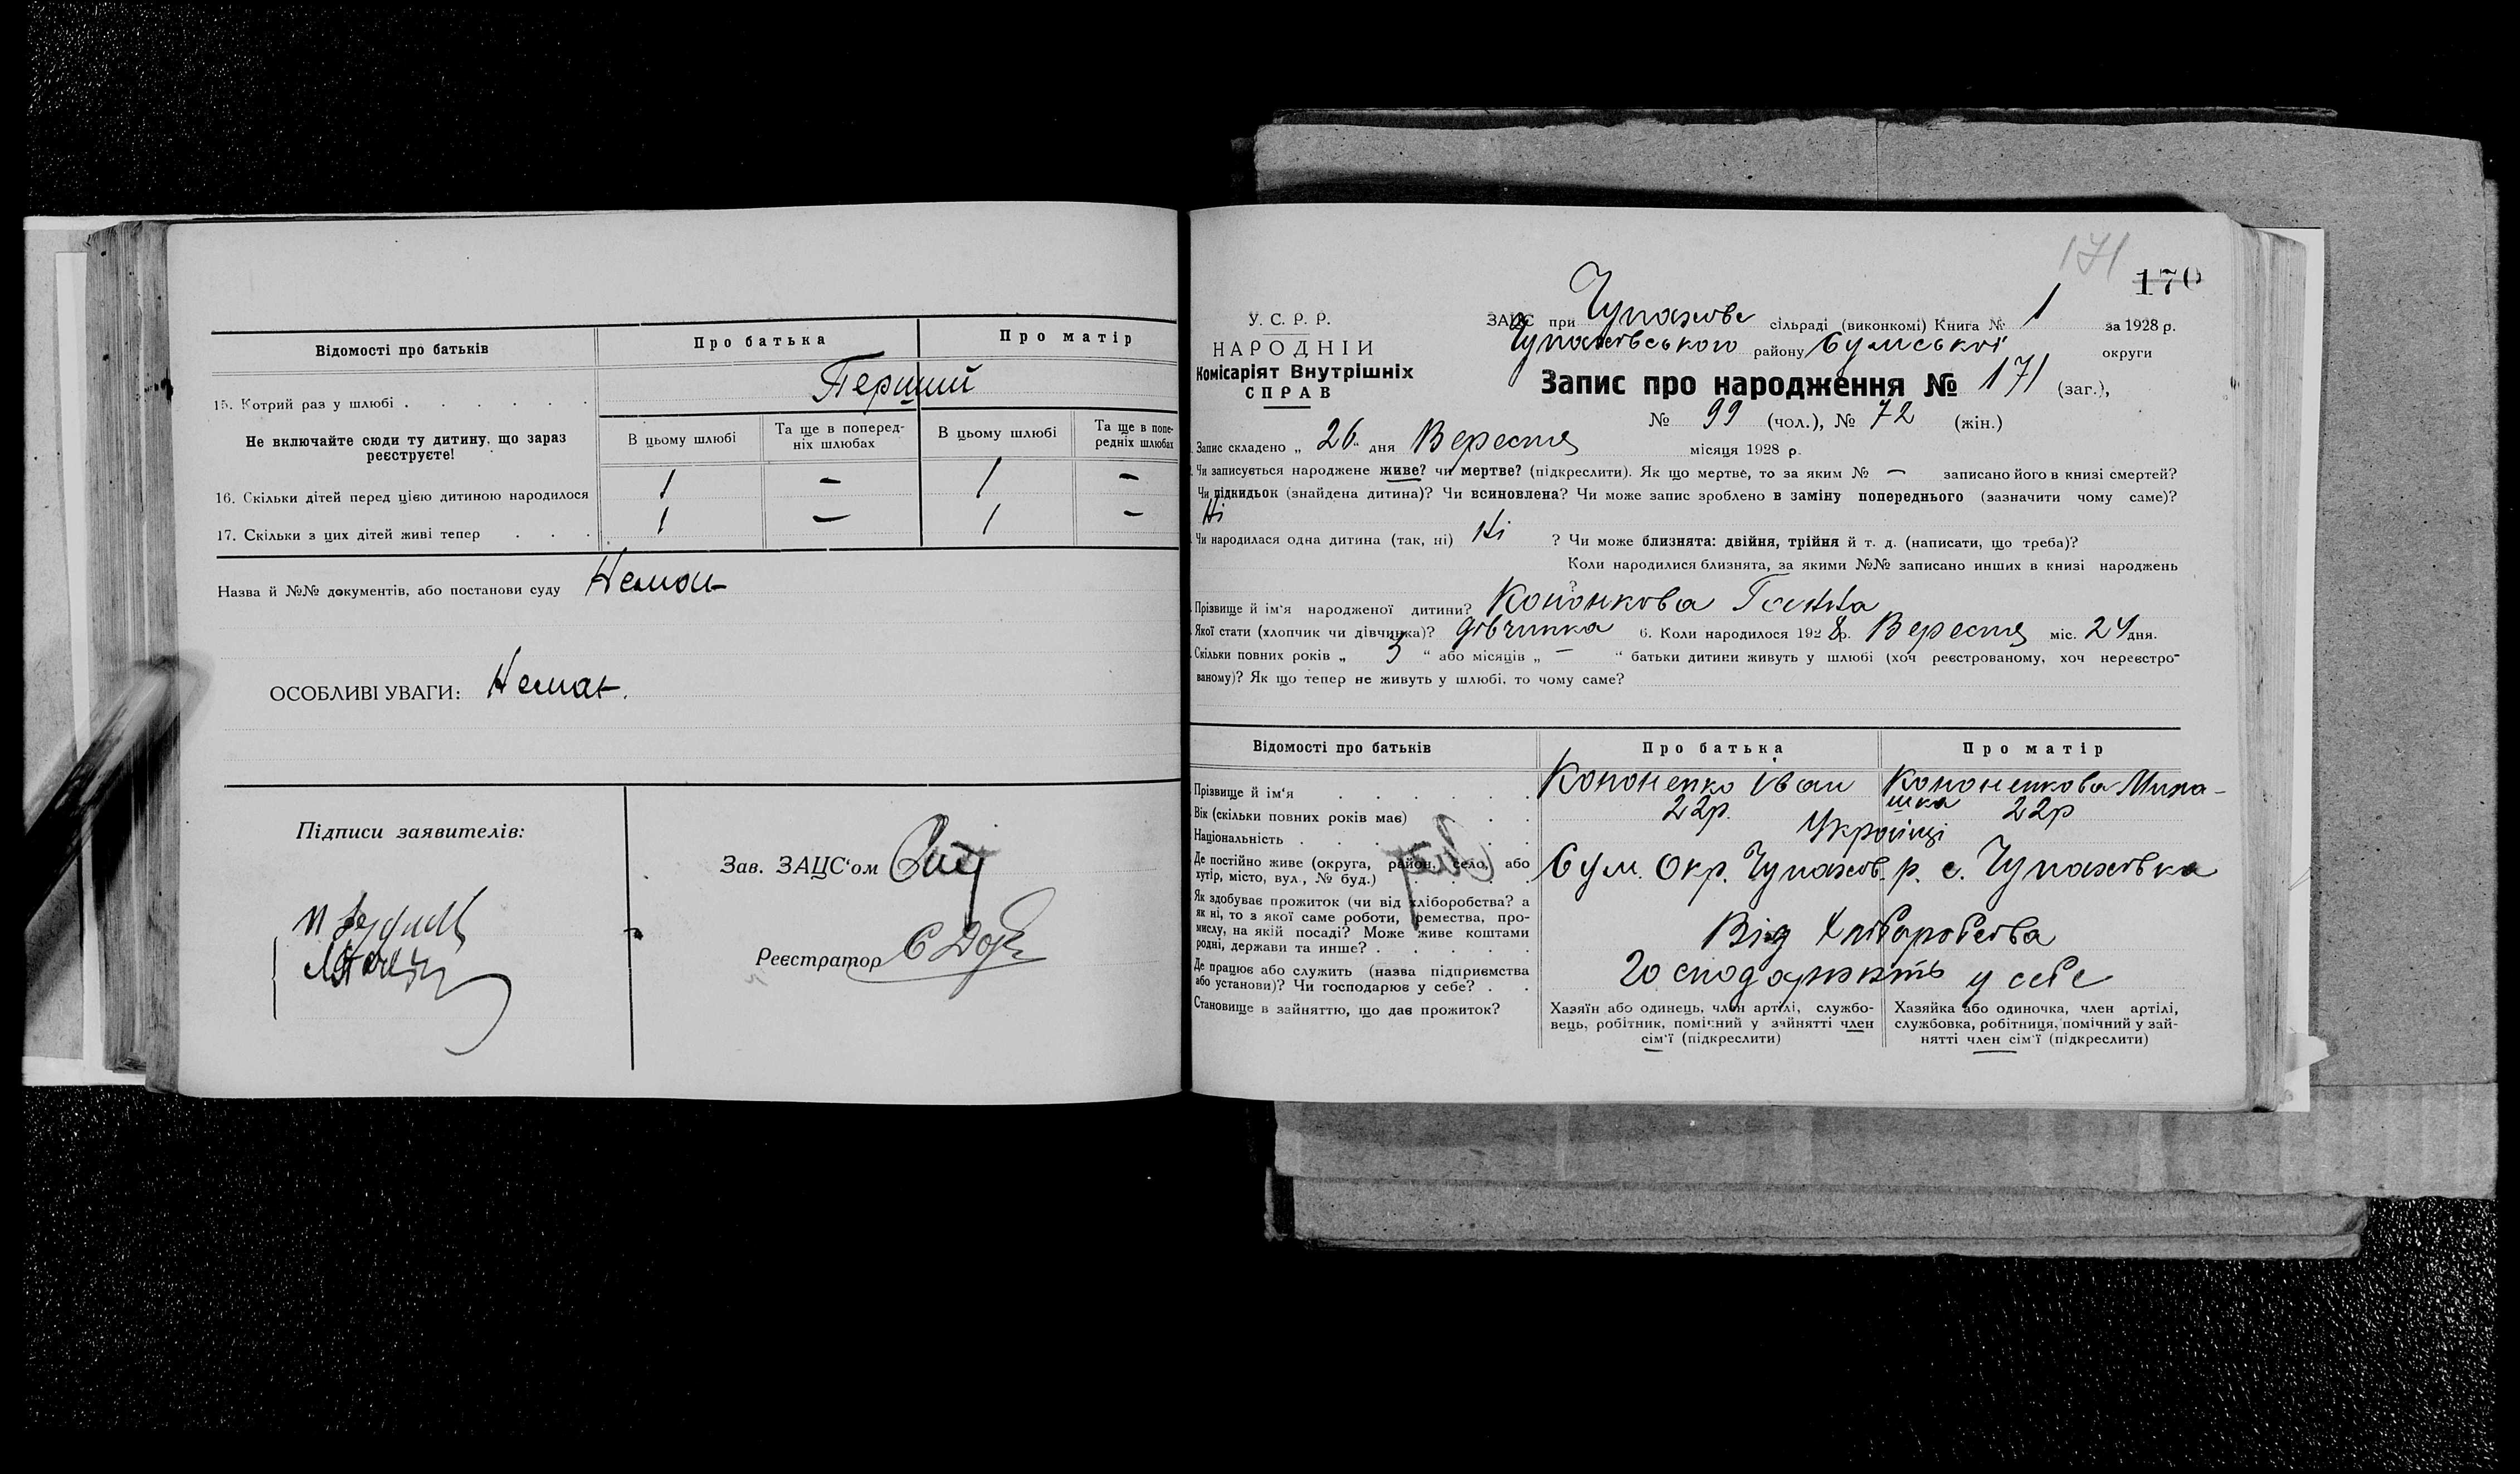 Відомості про батьків
Про батька
Про матір
15. Котрий раз у шлюбі . . . . . .
Перший
Не включайте сюди ту дитину, що зараз реєструєте!
В цьому шлюбі
Та ще в поперед-
ніх шлюбах
В цьому шлюбі
Та ще в попе-
редніх шлюбах
16. Скільки дітей перед цією дитиною народилося
1 – 1 –
17. Скільки з цих дітей живі тепер . . .
1 – 1 –
Назва й №№ документів, або постанови суду
ОСОБЛИВІ УВАГИ: Немає.
Підписи заявителів:
Зав. ЗАЦС‘ом
Реєстратор
171
170
У. С. Р. Р.
НАРОДНІЙ
Комісаріят Внутрішніх
СПРАВ
ЗАЦС при Чупахівс сільраді (виконкомі) Книга № 1 за 1928 р.
Чупахівського району Сумської округи
Запис про народження № 171 (заг.),
№ 99 (чол.), № 72 (жін.)
Запис складено „ 26 “ дня Вересня місяця 1928 р.
Чи записується народжене живе? чи мертве? (підкреслити). Як що мертве, то за яким № – записано його в книзі смертей?
Чи підкидьок (знайдена дитина)? Чи всиновлена? Чи може запис зроблено в заміну попереднього (зазначити чому саме)?
Ні
Чи народилася одна дитина (так, ні) Ні ? Чи може близнята: двійня, трійня й т. д. (написати, що треба)?
Коли народилися близнята, за якими №№ записано инших в книзі народжень
?
Прізвище й ім‘я народженої дитини? Кононкова Ганна
Якої стати (хлопчик чи дівчинка)? дівчинка 6. Коли народилося 1928 р. Вересня міс. 24 дня.
Скільки повних років „ 3 “ або місяців „ – “ батьки дитини живуть у шлюбі (хоч реєстрованому, хоч нереєстро-
ваному)? Як що тепер не живуть у шлюбі, то чому саме?
Відомості про батьків
Про батька
Про матір
Прізвище й ім‘я . . . . . .
Кононенко Іван
Кононенкова
Вік (скільки повних років має) . .
22р.
22р
Національність . . . . . .
Українці
Де постійно живе (округа, район, село, або
хутір, місто, вул., № буд.) . . . .
Сум. Окр. Чупахів. р. с. Чупахівка
Як здобуває прожиток (чи від хліборобства? а
як ні, то з якої саме роботи, ремества, про-
мислу, на якій посаді? Може живе коштами
родні, держави та инше? . . . . .
Від Хліборобства
Де працює або служить (назва підприємства
або установи)? Чи господарює у себе? . .
Господарюють у себе
Становище в зайняттю, що дає прожиток?
Хазяїн або одинець, член артілі, службо-
вець, робітник, помічний у зайнятті член
сім‘ї (підкреслити)
Хазяйка або одиночка, член артілі,
службовка, робітниця, помічний у зай-
нятті член сім‘ї (підкреслити)